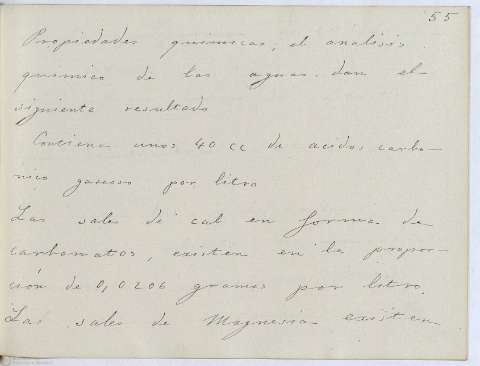 55
Propiedades quimicas; el analisis
quimico de las aguas dan el
siguiente resultado
Contiene unos 40 cc de acidos carbo-
nico gaseoso por litro
Las sales de cal en forma de
carbonatos, existen en la propor-
ción de 0,0206 gramos por litro.
Las sales de Magnesia existen